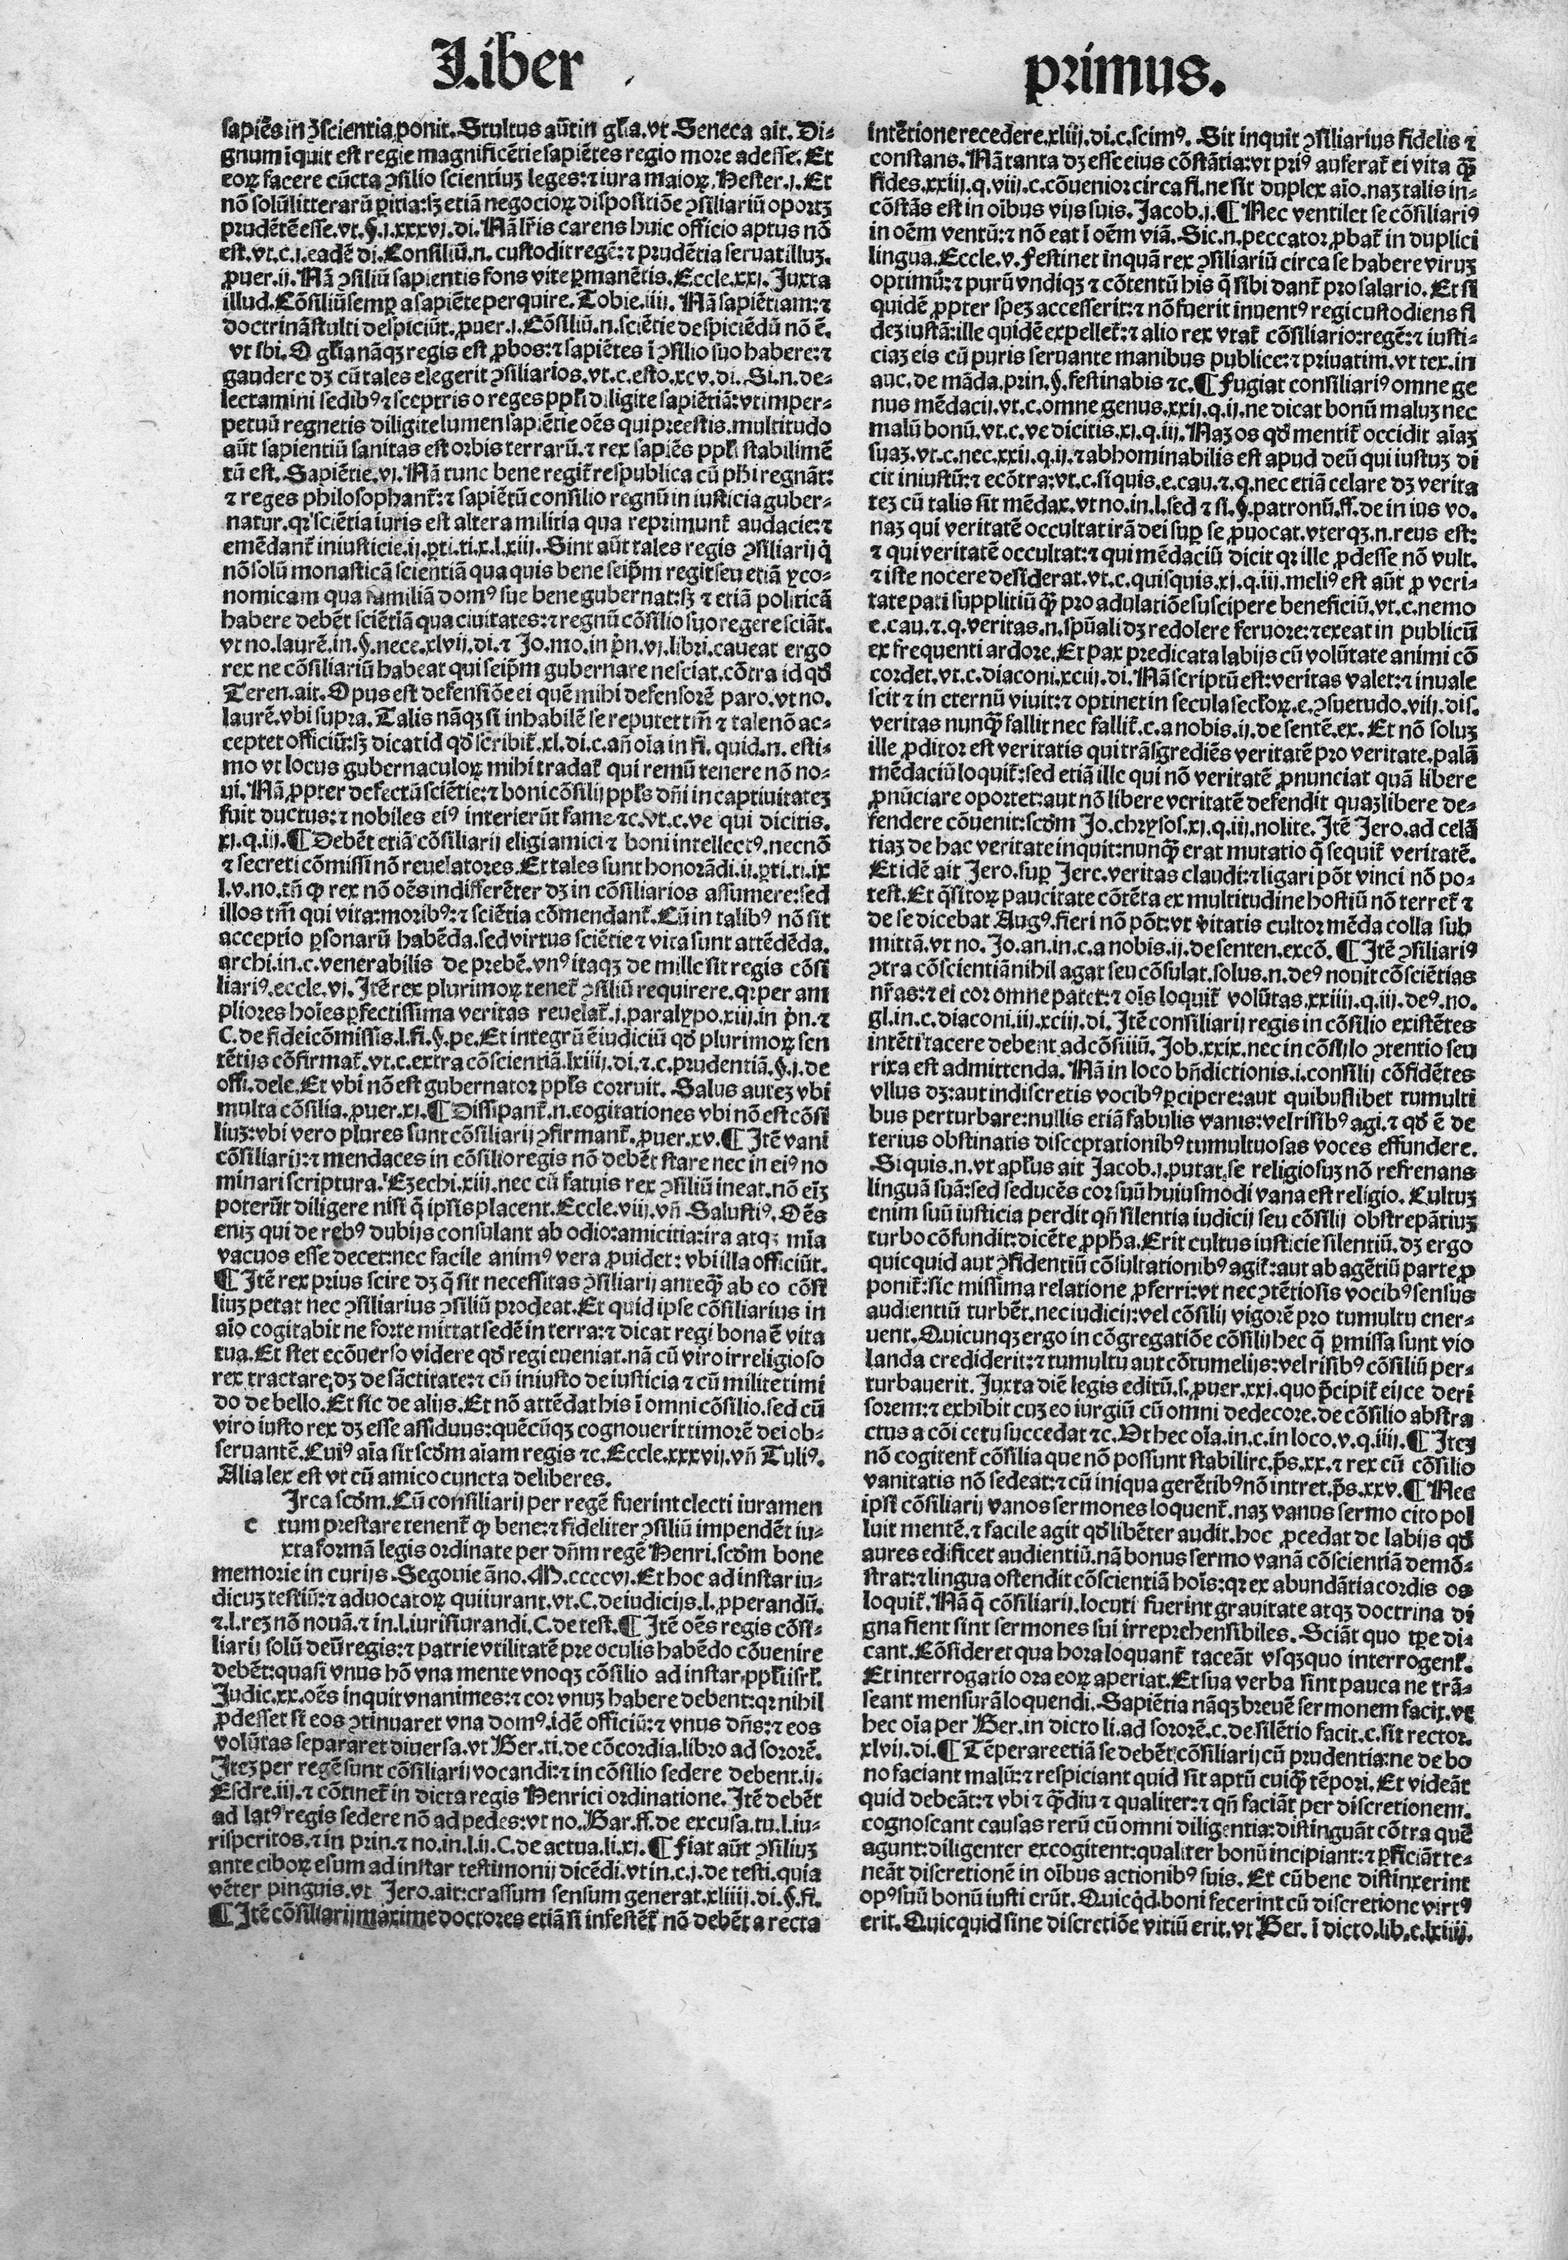 Liber primus.
sapiẽs in ꝯscientia ponit. Stultus aũt in gl'ia. vt Seneca ait. Di-
gnum iquit est regie magnificẽtie sapiẽtes regio more adesse. Et
eoꝝ facere cũcta ꝯsilio scientiuꝫ leges: ⁊ iura maioꝝ. Hester. j. Et
nõ solũ litteraꝝ ꝑitia: sꝫ etiã negocioꝝ dispositiõe ꝯsiliariũ oportꝫ
prudẽtẽ esse. vt. §. j. xxxvj. di. Nã lr̃is carens huic officio aptus nõ
est. vt. c. j. eadẽ di. Consiliũ. n. custodit regẽ: ⁊ prudẽtia seruat illuꝫ.
ꝓuer. ij. Nã ꝯsiliũ sapientis fons vite ꝑmanẽtis. Eccle. xxj. Juxta
illud. Cõsiliũ semꝑ a sapiẽte perquire. Tobie. iiij. Nã sapiẽtiam: ⁊
doctrinã stulti despiciũt. ꝓuer. j. Cõsiliũ. n. sciẽtie despiciẽdũ nõ ẽ.
vt ibi. O gl'ia nãqꝫ regis est ꝓbos: ⁊ sapiẽtes ĩ ꝯsilio suo habere: ⁊
gaudere dꝫ cũ tales elegerit ꝯsiliarios. vt. c. esto. xcv. di. Si. n. de-
lectamini sedibꝰ ⁊ sceptris o reges ppl'i diligite sapiẽtiã: vt imper-
petuũ regnetis diligite lumen sapiẽtie oẽs qui preestis. multitudo
aũt sapientiũ sanitas est orbis terrarũ. ⁊ rex sapiẽs ppl'i stabilimẽ
tũ est. Sapiẽtie. vj. Nã tunc bene regit̃ respublica cũ ph'i regnãt:
⁊ reges philosophant̃: ⁊ sapiẽtũ consilio regnũ in iusticia guber-
natur. qꝛ sciẽtia iuris est altera militia qua reprimunt̃ audacie: ⁊
emẽdant̃ iniusticie. ij. ꝑti. ti. x. l. xiij. Sint aũt tales regis ꝯsiliarij q̃
nõ solũ monasticã scientiã qua quis bene seip̃m regit seu etiã yco-
nomicam qua familiã domꝰ sue bene gubernat: sꝫ ⁊ etiã politicã
habere debẽt sciẽtiã qua ciuitates: ⁊ regnũ cõsilio suo regere sciãt.
vt no. laurẽ. in. §. nece. xlvij. di. ⁊ Jo. mo. in p̃n. vj. libri. caueat ergo
rex ne cõsiliariũ habeat qui seip̃m gubernare nesciat. cõtra id qd̃
Teren. ait. Opus est defensiõe ei quẽ mihi defensorẽ paro. vt no.
laurẽ. vbi supra. Talis nãqꝫ si inhabilẽ se reputet tm̃ ⁊ tale nõ ac-
ceptet officiũ: sꝫ dicat id qd̃ scribit̃. xl. di. c. añ oĩa in fi. quid. n. esti-
mo vt locus gubernaculoꝝ mihi tradat̃ qui remũ tenere nõ no-
ui. Nã ꝓpter defectũ sciẽtie: ⁊ boni cõsilij ppl's dñi in captiuitateꝫ
fuit ductus: ⁊ nobiles eiꝰ interierũt fame ⁊c. vt. c. ve qui dicitis.
xj. q. iij. ¶ Debẽt etiã cõsiliarij eligi amici ⁊ boni intellectꝰ. necnõ
⁊ secreti cõmissi nõ reuelatores. Et tales sunt honorãdi. ij. ꝑti. ti. ix
l. v. no. tñ ꝙ rex nõ oẽs indifferẽter dꝫ in cõsiliarios assumere: sed
illos tm̃ qui vita: moribꝰ: ⁊ sciẽtia cõmendant̃. Cũ in talibꝰ nõ sit
acceptio ꝑsonarũ habẽda. sed virtus sciẽtie ⁊ vita sunt attẽdẽda.
archi. in. c. venerabilis de prebẽ. vnꝰ itaqꝫ de mille sit regis cõsi
liariꝰ. eccle. vj. Itẽ rex plurimoꝝ tenet̃ ꝯsiliũ requirere. qꝛ per am
pliores hoĩes ꝑfectissima veritas reuelat̃. j. paralypo. xiij. in p̃n. ⁊
C. de fideicõmissis. l. fi. §. pe. Et integrũ ẽ iudiciũ qd̃ plurimoꝝ sen
tẽtijs cõfirmat̃. vt. c. extra cõscientiã. lxiiij. di. ⁊. c. prudentiã. §. j. de
offi. dele. Et vbi nõ est gubernator ppl's corruit. Salus auteꝫ vbi
multa cõsilia. ꝓuer. xj. ¶ Dissipant̃. n. cogitationes vbi nõ est cõsi
liuꝫ: vbi vero plures sunt cõsiliarij ꝯfirmant̃. ꝓuer. xv. ¶ Itẽ vani
cõsiliarij: ⁊ mendaces in cõsilio regis nõ debẽt stare nec in eiꝰ no
minari scriptura. Ezechi. xiij. nec cũ fatuis rex ꝯsiliũ ineat. nõ eĩꝫ
poterũt diligere nisi q̃ ipsis placent. Eccle. viij. vñ Salustiꝰ. Oẽs
eniꝫ qui de rebꝰ dubijs consulant ab odio: amicitia: ira atqꝫ mĩa
vacuos esse decet: nec facile animꝰ vera ꝓuidet: vbi illa officiũt.
¶ Itẽ rex prius scire dꝫ q̃ sit necessitas ꝯsiliarij anteq̃ꝫ ab eo cõsi
liuꝫ petat nec ꝯsiliarius ꝯsiliũ prodeat. Et quid ipse cõsiliarius in
aĩo cogitabit ne forte mittat sedẽ in terra: ⁊ dicat regi bona ẽ vita
tua. Et stet ecõuerso videre qd̃ regi eueniat. nã cũ viro irreligioso
rex tractare dꝫ de sãctitate: ⁊ cũ iniusto de iusticia ⁊ cũ milite timi
do de bello. Et sic de alijs. Et nõ attẽdat his ĩ omni cõsilio. sed cũ
viro iusto rex dꝫ esse assiduus: quẽcũqꝫ cognouerit timorẽ dei ob-
seruantẽ. Cuiꝰ aĩa sit scd̃m aĩam regis ⁊c. Eccle. xxxvij. vñ Tuliꝰ.
Alia lex est vt cũ amico cuncta deliberes.
Irca scd̃m. Cũ consiliarij per regẽ fuerint electi iuramen
c tum prestare tenent̃ ꝙ bene: ⁊ fideliter ꝯsiliũ impendẽt iu-
xta formã legis ordinate per dñm regẽ Henri. scd̃m bone
memorie in curijs. Segouie ãno. M. ccccvj. Et hoc ad instar iu-
dicuꝫ testiũ: ⁊ aduocatoꝝ qui iurant. vt. C. de iudicijs. l. ꝓperandũ.
⁊. l. reꝫ nõ nouã. ⁊ in. l. iurisiurandi. C. de test. ¶ Itẽ oẽs regis cõsi-
liarij solũ deũ regis: ⁊ patrie vtilitatẽ pre oculis habẽdo cõuenire
debẽt: quasi vnus hõ vna mente vnoqꝫ cõsilio ad instar. ppl'i isrl'.
Judic. xx. oẽs inquit vnanimes: ⁊ cor vnuꝫ habere debent: qꝛ nihil
ꝓdesset si eos ꝯtinuaret vna domꝰ. idẽ officiũ: ⁊ vnus dñs: ⁊ eos
volũtas separaret diuersa. vt Ber. ti. de cõcordia. libro ad sororẽ.
Iteꝫ per regẽ sunt cõsiliarij vocandi: ⁊ in cõsilio sedere debent. ij.
Esdre. iij. ⁊ cõtinet̃ in dicta regis Henrici ordinatione. Itẽ debẽt
ad latꝰ regis sedere nõ ad pedes: vt no. Bar. ff. de excusa. tu. l. iu-
risperitos. ⁊ in prin. ⁊ no. in. l. ij. C. de actua. li. xj. ¶ Fiat aũt ꝯsiliuꝫ
ante ciboꝝ esum ad instar testimonij dicẽdi. vt in. c. j. de testi. quia
vẽter pinguis. vt Jero. ait: crassum sensum generat. xliiij. di. §. fi.
¶ Itẽ cõsiliarij maxime doctores etiã si infestẽt̃ nõ debẽt a recta
intẽtione recedere. xliij. di. c. scimꝰ. Sit inquit ꝯsiliarius fidelis ⁊
constans. Nã tanta dꝫ esse eius cõstãtia: vt priꝰ auferat̃ ei vita q̃ꝫ
fides. xxiij. q. viij. c. cõuenior circa fi. ne sit duplex aĩo. naꝫ talis in-
cõstãs est in oĩbus vijs suis. Jacob. j. ¶ Nec ventilet se cõsiliariꝰ
in oẽm ventũ: ⁊ nõ eat ĩ oẽm viã. Sic. n. peccator ꝓbat̃ in duplici
lingua. Eccle. v. Festinet inquã rex ꝯsiliariũ circa se habere viruꝫ
optimũ: ⁊ purũ vndiqꝫ ⁊ cõtentũ his q̃ sibi dant̃ pro salario. Et si
quidẽ ꝓpter speꝫ accesserit: ⁊ nõ fuerit inuentꝰ regi custodiens fi
deꝫ iustã: ille quidẽ expellet̃: ⁊ alio rex vtat̃ cõsiliario: regẽ: ⁊ iusti-
ciaꝫ eis cũ puris seruante manibus publice: ⁊ priuatim. vt tex. in
auc. de mãda. prin. §. festinabis ⁊c. ¶ Fugiat consiliariꝰ omne ge
nus mẽdacij. vt. c. omne genus. xxij. q. ij. ne dicat bonũ maluꝫ nec
malũ bonũ. vt. c. ve dicitis. xj. q. iij. Naꝫ os qd̃ mentit̃ occidit aĩaꝫ
suaꝫ. vt. c. nec. xxij. q. ij. ⁊ abhominabilis est apud deũ qui iustuꝫ di
cit iniustũ: ⁊ ecõtra: vt. c. si quis. e. cau. ⁊. q. nec etiã celare dꝫ verita
teꝫ cũ talis sit mẽdax. vt no. in. l. sed ⁊ si. §. patronũ. ff. de in ius vo.
naꝫ qui veritatẽ occultat irã dei suꝑ se ꝓuocat. vterqꝫ. n. reus est:
⁊ qui veritatẽ occultat: ⁊ qui mẽdaciũ dicit qꝛ ille ꝓdesse nõ vult.
⁊ iste nocere desiderat. vt. c. quisquis. xj. q. iij. meliꝰ est aũt ꝓ veri-
tate pati supplitiũ q̃ꝫ pro adulatiõe suscipere beneficiũ. vt. c. nemo
e. cau. ⁊. q. veritas. n. spũali dꝫ redolere feruore: ⁊ exeat in publicũ
ex frequenti ardore. Et pax predicata labijs cũ volũtate animi cõ
cordet. vt. c. diaconi. xciij. di. Nã scriptũ est: veritas valet: ⁊ inuale
scit ⁊ in eternũ viuit: ⁊ optinet in secula seculoꝝ. c. ꝯsuetudo. viij. dis.
veritas nunq̃ꝫ fallit nec fallit̃. c. a nobis. ij. de sentẽ. ex. Et nõ soluꝫ
ille ꝓditor est veritatis qui trãsgrediẽs veritatẽ pro veritate. palã
mẽdaciũ loquit̃: sed etiã ille qui nõ veritatẽ ꝓnunciat quã libere
ꝓnũciare oportet: aut nõ libere veritatẽ defendit quaꝫ libere de-
fendere cõuenit: scd̃m Jo. chrysos. xj. q. iij. nolite. Itẽ Jero. ad celã
tiaꝫ de hac veritate inquit: nunq̃ꝫ erat mutatio q̃ sequit̃ veritatẽ.
Et idẽ ait Jero. suꝑ Jere. veritas claudi: ⁊ ligari põt vinci nõ po-
test. Et q̃sitoꝝ paucitate cõtẽta ex multitudine hostiũ nõ terret̃ ⁊
de se dicebat Augꝰ. fieri nõ põt: vt v̾itatis cultor mẽda colla sub
mittã. vt no. Jo. an. in. c. a nobis. ij. de senten. excõ. ¶ Itẽ ꝯsiliariꝰ
ꝯtra cõscientiã nihil agat seu cõsulat. solus. n. deꝰ nouit cõsciẽtias
nr̃as: ⁊ ei cor omne patet: ⁊ oĩs loquit̃ volũtas. xxiiij. q. iij. deꝰ. no.
gl. in. c. diaconi. iij. xciij. di. Itẽ consiliarij regis in cõsilio existẽtes
intẽti tacere debent ad cõsiliũ. Job. xxix. nec in cõsilio ꝯtentio seu
rixa est admittenda. Nã in loco bñdictionis. i. consilij cõfidẽtes
vllus dꝫ: aut indiscretis vocibꝰ ꝑcipere: aut quibuslibet tumulti
bus perturbare: nullis etiã fabulis vanis: vel risibꝰ agi. ⁊ qd̃ ẽ de
terius obstinatis disceptationibꝰ tumultuosas voces effundere.
Siquis. n. vt apl'us ait Jacob. j. putat se religiosuꝫ nõ refrenans
linguã suã: sed seducẽs cor suũ huiusmodi vana est religio. Cultuꝫ
enim suũ iusticia perdit qñ silentia iudicij seu cõsilij obstrepãtiuꝫ
turbo cõfundit: dicẽte ꝓph̃a. Erit cultus iusticie silentiũ. dꝫ ergo
quicquid aut ꝯfidentiũ cõsultationibꝰ agit̃: aut ab agẽtiũ parte ꝓ
ponit̃: sic missima relatione ꝓferri: vt nec ꝯtẽtiosis vocibꝰ sensus
audientiũ turbẽt. nec iudicij: vel cõsilij vigorẽ pro tumultu ener-
uent. Quicunqꝫ ergo in cõgregatiõe cõsilij hec q̃ ꝑmissa sunt vio
landa crediderit: ⁊ tumultu aut cõtumelijs: vel risibꝰ cõsiliũ per-
turbauerit. Juxta diẽ legis editũ. s. ꝓuer. xxj. quo p̃cipit̃ eijce deri
sorem: ⁊ exhibit cuꝫ eo iurgiũ cũ omni dedecore. de cõsilio abstra
ctus a cõi cetu succedat ⁊c. Vt hec oĩa. in. c. in loco. v. q. iiij. ¶ Iteꝫ
nõ cogitent̃ cõsilia que nõ possunt stabilire. p̃s. xx. ⁊ rex cũ cõsilio
vanitatis nõ sedeat: ⁊ cũ iniqua gerẽtibꝰ nõ intret. p̃s. xxv. ¶ Nec
ipsi cõsiliarij vanos sermones loquent̃. naꝫ vanus sermo cito pol
luit mentẽ. ⁊ facile agit qd̃ libẽter audit. hoc ꝓcedat de labijs qd̃
aures edificet audientiũ. nã bonus sermo vanã cõscientiã demõ-
strat: ⁊ lingua ostendit cõscientiã hoĩs: qꝛ ex abundãtia cordis os
loquit̃. Nã q̃ cõsiliarij. locuti fuerint grauitate atqꝫ doctrina di
gna fient sint sermones sui irreprehensibiles. Sciãt quo tꝑe di-
cant. Cõsideret qua hora loquant̃ taceãt vsqꝫquo interrogent̃.
Et interrogatio ora eoꝝ aperiat. Et sua verba sint pauca ne trã-
seant mensurã loquendi. Sapiẽtia nãqꝫ breuẽ sermonem facit. vt
hec oĩa per Ber. in dicto li. ad sororẽ. c. de silẽtio facit. c. sit rector.
xlvij. di. ¶ Tẽperare etiã se debẽt cõsiliarij cũ prudentia: ne de bo
no faciant malũ: ⁊ respiciant quid sit aptũ cuiq̃ꝫ tẽpori. Et videãt
quid debeãt: ⁊ vbi ⁊ q̃ꝫdiu ⁊ qualiter: ⁊ qñ faciãt per discretionem.
cognoscant causas rerũ cũ omni diligentia: distinguãt cõtra quẽ
agunt: diligenter excogitent: qualiter bonũ incipiant: ⁊ ꝑficiãt te-
neãt discretionẽ in oĩbus actionibꝰ suis. Et cũ bene distinxerint
opꝰ suũ bonũ iusti erũt. Quicq̃d. boni fecerint cũ discretione virtꝰ
erit. Quicquid sine discretiõe vitiũ erit. vt Ber. ĩ dicto. lib. c. lxiiij.